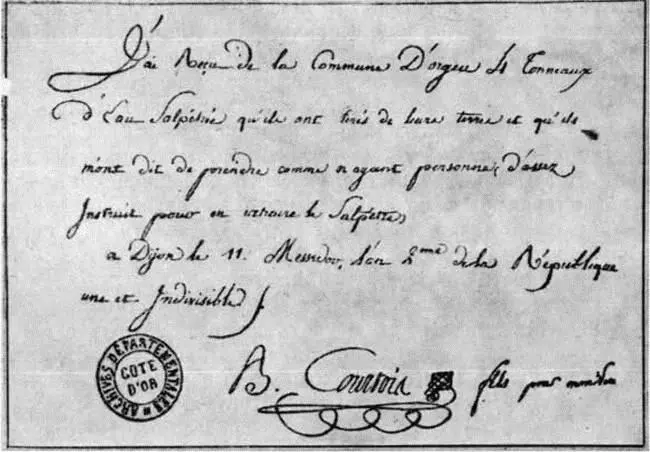 J'ai Reçu de la Commune D'orgeu 4 Tonneaux
d'Eau Salpétrée qu'ils ont tirés de leurs terres et qu'ils
m'ont dit de prendre comme n'ayant personne d'assez
Instruit pour en extraire le Salpêtre
a Dijon le 11. Messidor, l'an 2eme de la République
une et Indivisible
B. Courtois fils pour
ARCHIVES DÉPARTEMENTALES
COTE
D'OR